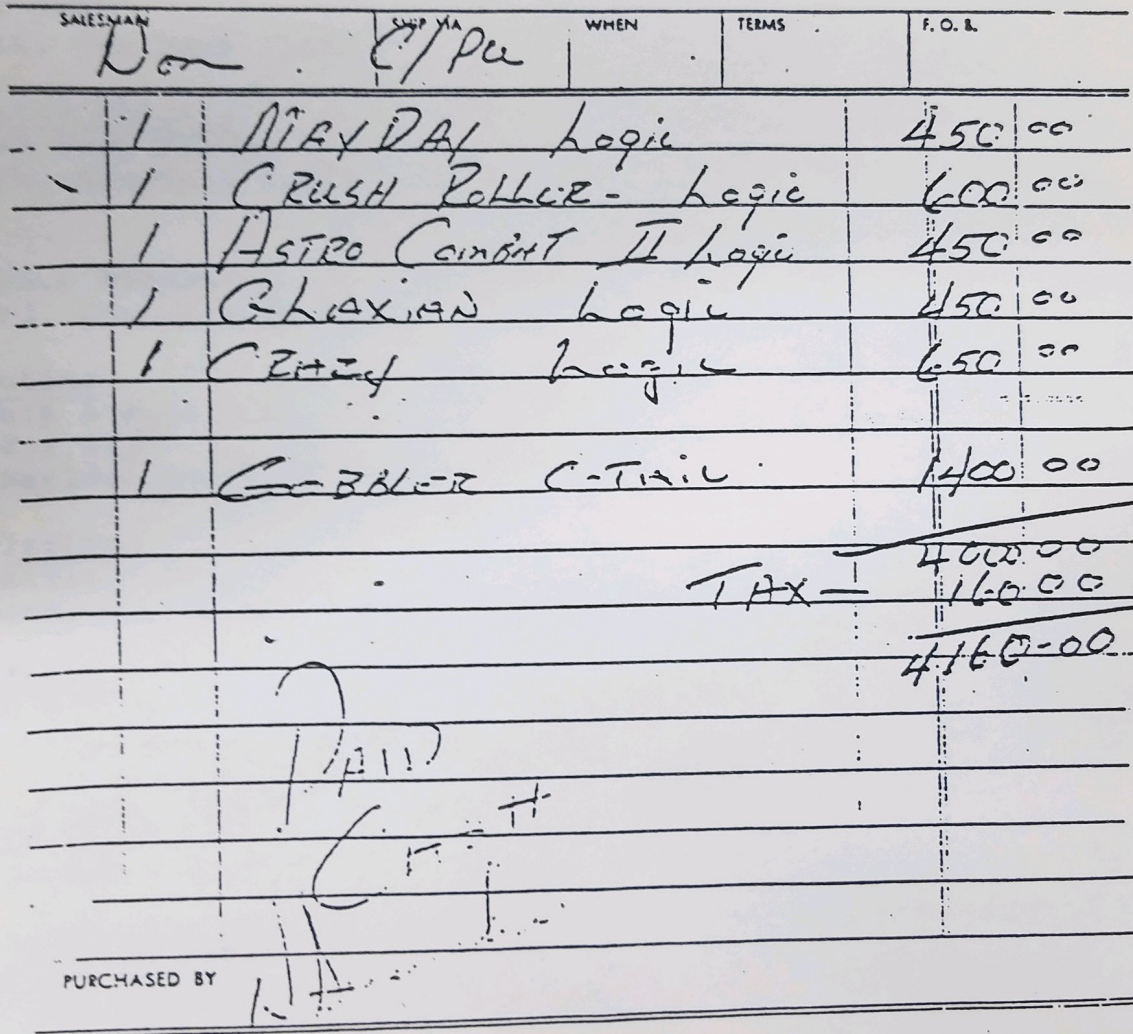 SALESMAN SHIP VIA WHEN TERMS F. O. B.
Don C/Pu
1 MAYDAY Logic 450 00
1 CRUSH ROLLER - Logic 600 00
1 ASTRO COMBAT II Logic 450 00
1 GLAXIAN Logic 450 00
1 CRAZY Logic 650 00
1 GOBBLER C-TAIL 1400 00
4000 00
TAX — 160 00
4160-00
PAID
PURCHASED BY